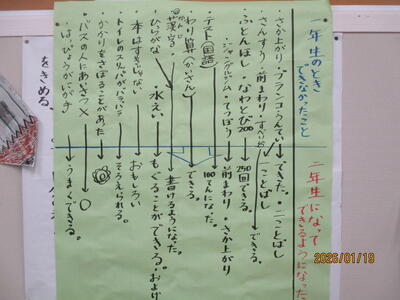 一年生のとき
できなかったこと
二年生になって
できるようになった
さか上がり・ブランコ・うんてい→できた。・二つとばし
さんすう・前まわり・すべり
一ことばし
できる。
ふとんほし・なわとび200→250回できる。
ジャングルジム・てつぼう→前まわり・さか上がり
テスト(国語)→100てんになった。
わり算(かいさん)→できる。
漢字→書けるようになった。
ひらがな・水えい→もぐることができる・およげ
本はすきじゃない→おもしろい
トイレのスリッパがバラバラ→そろえられる。
かかりをさぼることがあった→
バスの人にあいさつ×→○
はっぴょうがにが手→うまくできる。
をきめる。
2026/01/19